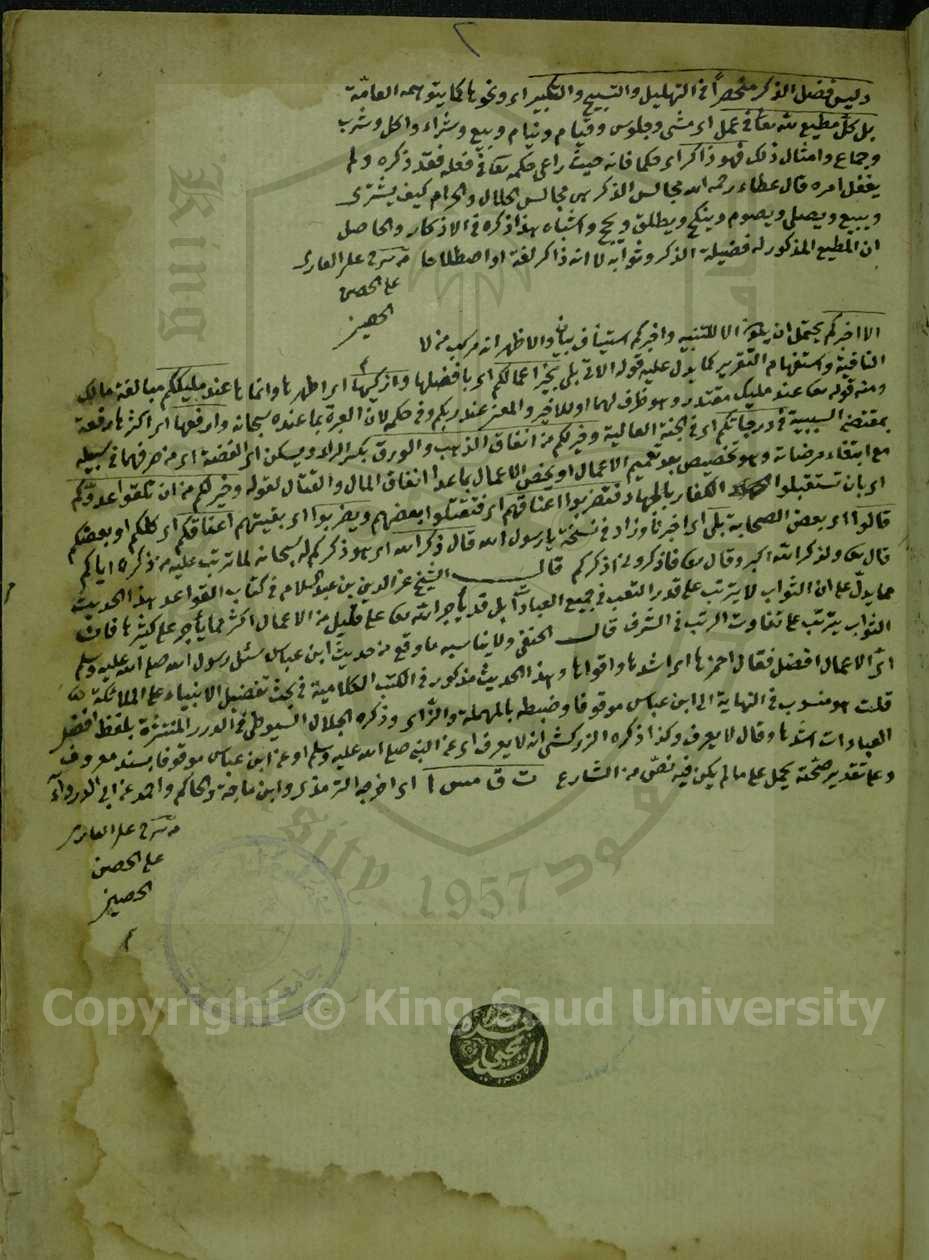 وليس فضل الذكر منحصراً في التهليل والتسبيح والتكبير اى ونحوها كما يتوهمه العامّة
بل كلّ مطيع لله تعا في عمل اى مشى وجلوس وقيام ونيام وبيع وشراء واكل وشرب
وجماع وامثال ذلك فهو ذاكر اى حكما فانه حيث راعى حكمه تعا في فعله فقد ذكره ولم
يغفل امره قال عطاء رحمه الله مجالس الذكر هى مجالس الحلال والحرام كيف يشترى
ويبيع ويصلى ويصوم وينكح ويطلق ويحج واشباه هذا ذكره في الاذكار والحاصل
ان المطيع المذكور له فضيلة الذكر وثوابه لا انه ذاكر لغة او اصطلاحا من شرح على القارى
على الحصن
الحصين
الا اخبركم يحتمل ان يكون الا للتنبيه واخبركم استيناف بيان والاظهر انه مركب من لا
النافية واستفهام التقرير كما يدل عليه قوله الاتى بلى بخير اعمالكم اى بافضلها وازكيها اى اطهرها وانماها عند مليككم مبالغة مالك
ومنه قوله تعا عند مليك مقتدر وهو ظرف لهما او للاخير والمعنى عند ربكم وفي حكمه لان العبرة بما عنده سبحانه وارفعها اى اكثرها رفعة
بمقتضى السببية في درجاتكم اى في الجنة العالية وخير لكم من انفاق الذهب والورق بكسر الراء ويسكن اى الفضة اى من صرفهما في سبيله
مع ابتغاء مرضاته وهو تخصيص بعد تعميم الاعمال او يخص الاعمال بما عدا انفاق المال والقتال لقوله وخير لكم من ان تلقوا عدوّكم
اى بان تستقبلوا الكفار بالجهاد فتضربوا اعناقهم اى فتقتلوا بعضهم ويضربوا اى بقيتهم اعناقكم اى كلكم او بعضكم
قالوا اى بعض الصحابة بلى اى اخبرنا وزاد في نسخة يا رسول الله قال ذكر الله اى هو ذكركم له سبحانه لما ترتب عليه من ذكره اياكم
قال تعا ولذكر الله اكبر وقال تعا فاذكرونى اذكركم قال الشيخ عز الدين بن عبد السلام في كتاب القواعد هذا الحديث
مما يدلّ على ان الثواب لا يترتب على قدر التعب في جميع العبادات بل قد يأجر الله تعا على قليل من الاعمال اكثر مما يأجر على كثيرها فان
الثواب يترتب على تفاوت الرتب في الشرف قال الحنفى ولا يناسبه ما وقع من حديث ابن عباس سئل رسول الله صلى الله عليه وسلم
اىّ الاعمال افضل فقال احمزها اى اشدها واقواها وهذا الحديث مذكور في الكتب الكلامية في بحث تفضيل الانبياء على الملائكة
قلت هو منسوب في النهاية الى ابن عباس موقوفا وضبطه بالمهملة والزاى وذكره الجلال السيوطى في الدرر المنتثرة بلفظ افضل
العبادات اشدها وقال لا يعرف وكذا ذكره الزركشى انه لا يعرف اى عن النبى صلى الله عليه وسلم او عن ابن عباس موقوفا بسند معروف
وعلى تقدير صحّته يحمل على ما لم يكن فيه نصّ من الشارع ت ق مس ا اى اخرجه الترمذى وابن ماجة والحاكم واحمد عن ابى الدرداء
من شرح على القارى
على الحصن
الحصين
King
sity 1957 سعود
Copyright © King Saud University